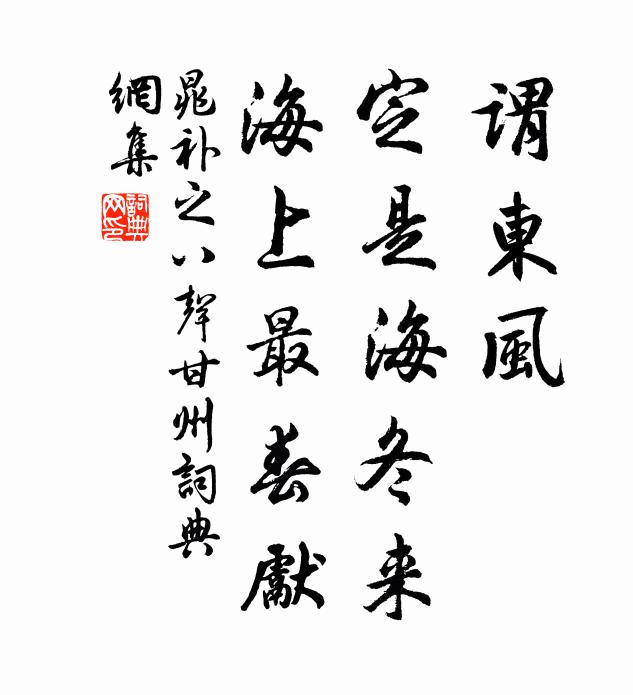 謂東風
定是海冬来
海上最春獻
晁补之八聲甘州詞典
網集
詞典
网印